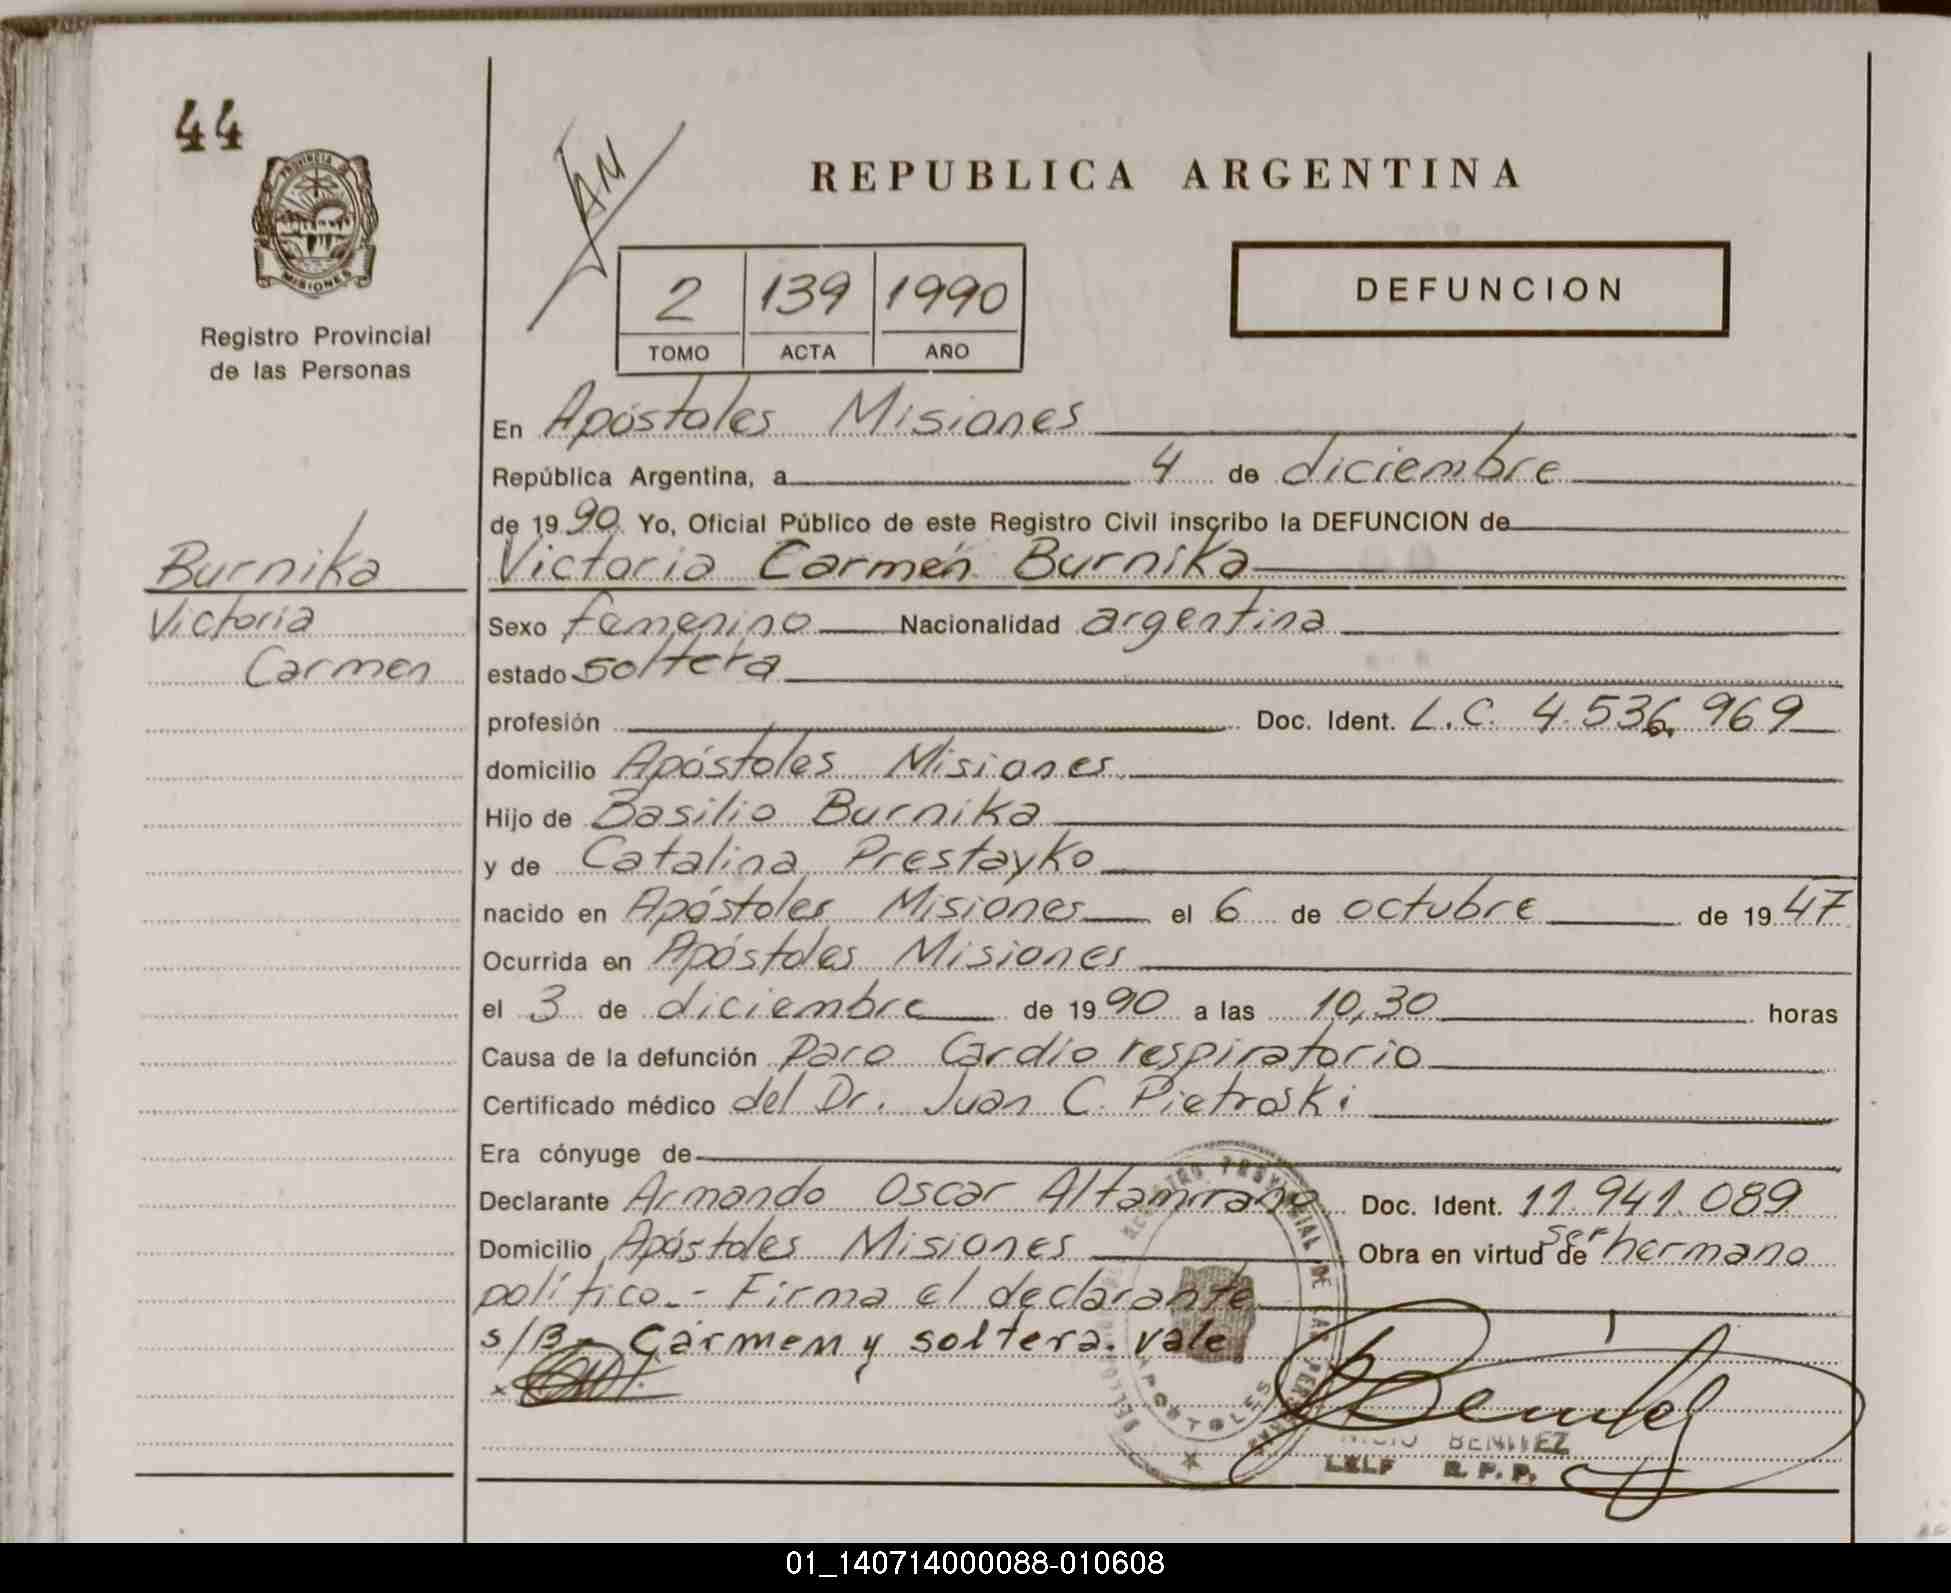 44
PROVINCIA DE
MISIONES
Registro Provincial
de las Personas
Burnika
Victoria
Carmen
REPUBLICA ARGENTINA
2 139 1990
TOMO ACTA AÑO
DEFUNCION
En Apóstoles Misiones
República Argentina, a 4 de diciembre
de 1990. Yo, Oficial Público de este Registro Civil inscribo la DEFUNCION de
Victoria Carmen Burnika
Sexo femenino Nacionalidad argentina
estado soltera
profesión Doc. Ident. L.C. 4.536.969
domicilio Apóstoles Misiones
Hijo de Basilio Burnika
y de Catalina Prestayko
nacido en Apóstoles Misiones el 6 de octubre de 1947
Ocurrida en Apóstoles Misiones
el 3 de diciembre de 1990 a las 10,30 horas
Causa de la defunción Paro Cardio respiratorio
Certificado médico del Dr. Juan C. Pietroski
Era cónyuge de
Declarante Armando Oscar Altamirano Doc. Ident. 11.941.089
Domicilio Apóstoles Misiones Obra en virtud de ser hermano
político.- Firma el declarante
s/B- Carmen y soltera. vale
REGISTRO PROVINCIAL DE LAS PERSONAS
APOSTOLES
BENITEZ
R. P. P.
01_140714000088-010608